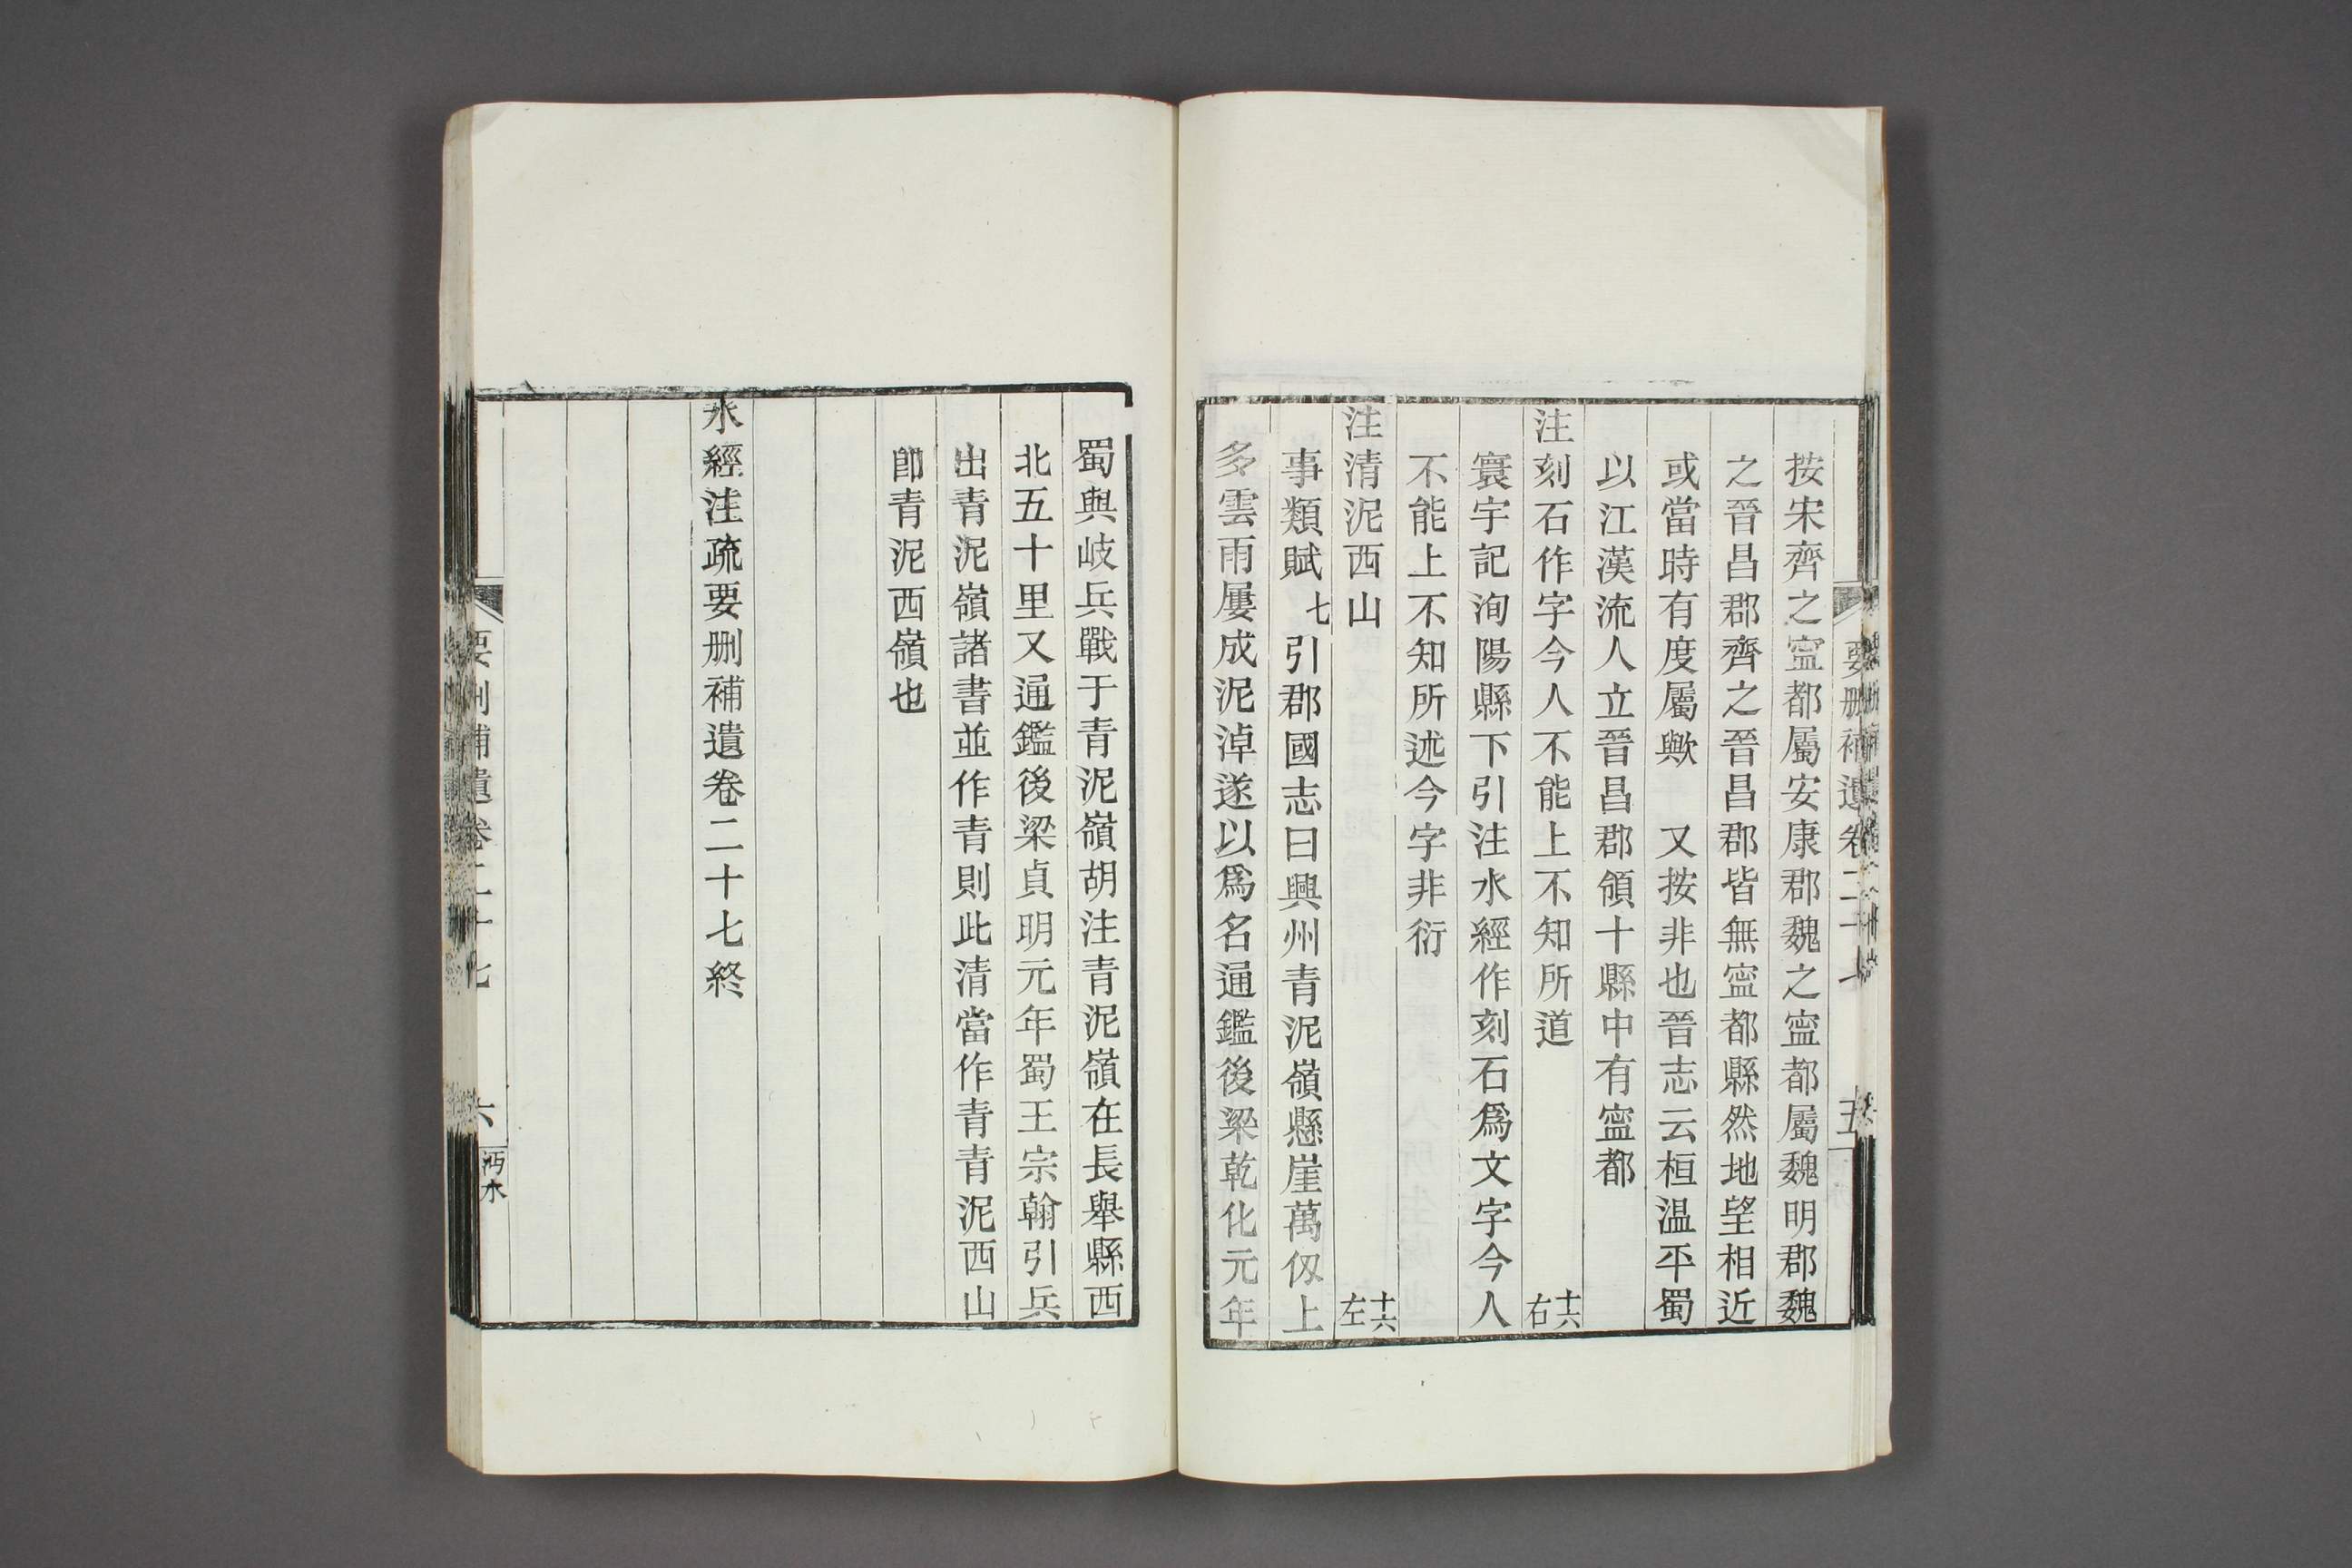 要刪補遺卷二十七
五
按宋齊之寍都屬安康郡魏之寍都屬魏明郡魏
之晉昌郡齊之晉昌郡皆無寍都縣然地望相近
或當時有度屬歟　又按非也晉志云桓温平蜀
以江漢流人立晉昌郡領十縣中有寍都
注刻石作字今人不能上不知所道　十六右
寰宇記洵陽縣下引注水經作刻石爲文字今人
不能上不知所述今字非衍
注清泥西山　十六左
事類賦七引郡國志曰興州青泥嶺懸崖萬仭上
多雲雨屢成泥淖遂以爲名通鑑後梁乾化元年
蜀與岐兵戰于青泥嶺胡注青泥嶺在長舉縣西
北五十里又通鑑後梁貞明元年蜀王宗翰引兵
出青泥嶺諸書並作青則此清當作青青泥西山
卽青泥西嶺也
水經注疏要刪補遺卷二十七終
要刪補遺卷二十七
六
沔水